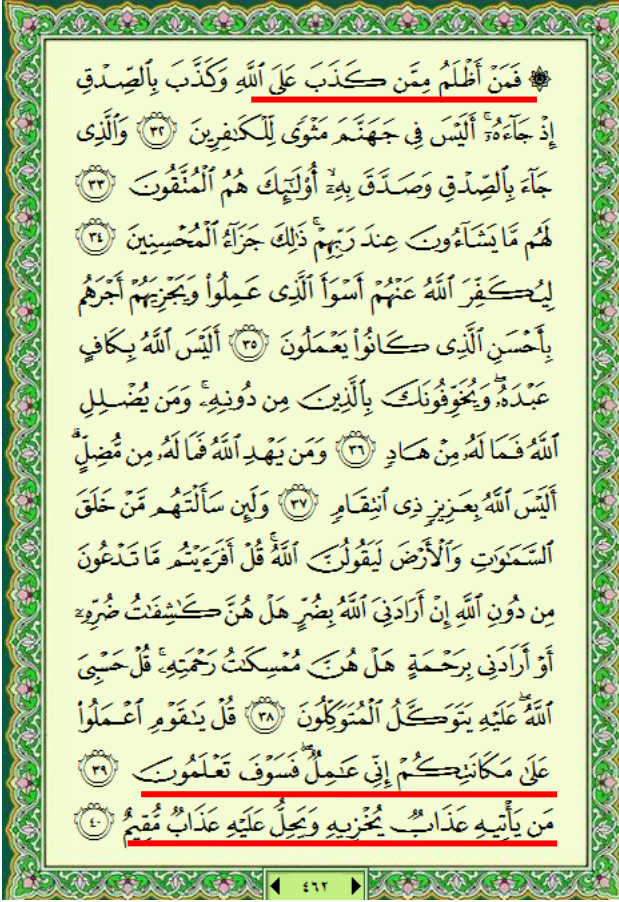 ۞ فَمَنْ أَظْلَمُ مِمَّن كَذَبَ عَلَى ٱللَّهِ وَكَذَّبَ بِٱلصِّدْقِ
إِذْ جَآءَهُۥٓ ۚ أَلَيْسَ فِى جَهَنَّمَ مَثْوًى لِّلْكَـٰفِرِينَ ﴿٣٢﴾ وَٱلَّذِى
جَآءَ بِٱلصِّدْقِ وَصَدَّقَ بِهِۦٓ ۙ أُو۟لَـٰٓئِكَ هُمُ ٱلْمُتَّقُونَ ﴿٣٣﴾
لَهُم مَّا يَشَآءُونَ عِندَ رَبِّهِمْ ۚ ذَٰلِكَ جَزَآءُ ٱلْمُحْسِنِينَ ﴿٣٤﴾
لِيُكَفِّرَ ٱللَّهُ عَنْهُمْ أَسْوَأَ ٱلَّذِى عَمِلُوا۟ وَيَجْزِيَهُمْ أَجْرَهُم
بِأَحْسَنِ ٱلَّذِى كَانُوا۟ يَعْمَلُونَ ﴿٣٥﴾ أَلَيْسَ ٱللَّهُ بِكَافٍ
عَبْدَهُۥ ۖ وَيُخَوِّفُونَكَ بِٱلَّذِينَ مِن دُونِهِۦ ۚ وَمَن يُضْلِلِ
ٱللَّهُ فَمَا لَهُۥ مِنْ هَادٍ ﴿٣٦﴾ وَمَن يَهْدِ ٱللَّهُ فَمَا لَهُۥ مِن مُّضِلٍّ ۗ
أَلَيْسَ ٱللَّهُ بِعَزِيزٍ ذِى ٱنتِقَامٍ ﴿٣٧﴾ وَلَئِن سَأَلْتَهُم مَّنْ خَلَقَ
ٱلسَّمَـٰوَٰتِ وَٱلْأَرْضَ لَيَقُولُنَّ ٱللَّهُ ۚ قُلْ أَفَرَءَيْتُم مَّا تَدْعُونَ
مِن دُونِ ٱللَّهِ إِنْ أَرَادَنِىَ ٱللَّهُ بِضُرٍّ هَلْ هُنَّ كَـٰشِفَـٰتُ ضُرِّهِۦٓ
أَوْ أَرَادَنِى بِرَحْمَةٍ هَلْ هُنَّ مُمْسِكَـٰتُ رَحْمَتِهِۦ ۚ قُلْ حَسْبِىَ
ٱللَّهُ ۖ عَلَيْهِ يَتَوَكَّلُ ٱلْمُتَوَكِّلُونَ ﴿٣٨﴾ قُلْ يَـٰقَوْمِ ٱعْمَلُوا۟
عَلَىٰ مَكَانَتِكُمْ إِنِّى عَـٰمِلٌ ۖ فَسَوْفَ تَعْلَمُونَ ﴿٣٩﴾
مَن يَأْتِيهِ عَذَابٌ يُخْزِيهِ وَيَحِلُّ عَلَيْهِ عَذَابٌ مُّقِيمٌ ﴿٤٠﴾
٤٦٢